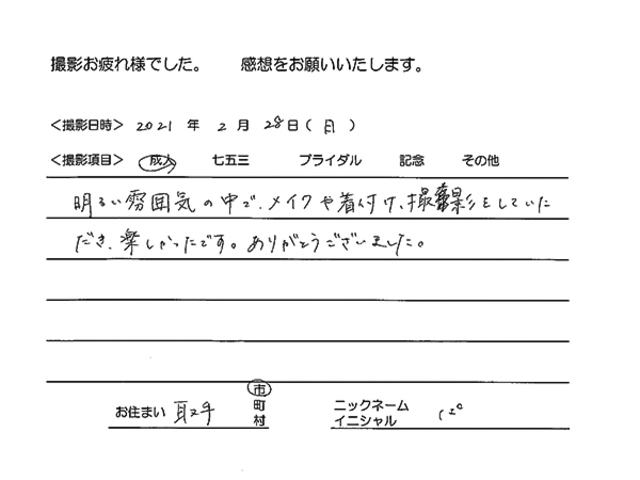 撮影お疲れ様でした。 感想をお願いいたします。
<撮影日時> 2021 年 2 月 28 日 ( 日 )
<撮影項目> 成人 七五三 ブライダル 記念 その他
明るい雰囲気の中で、メイクや着付け、撮影をしていた
だき、楽しかったです。ありがとうございました。
お住まい 取手 市
町
村
ニックネーム
イニシャル